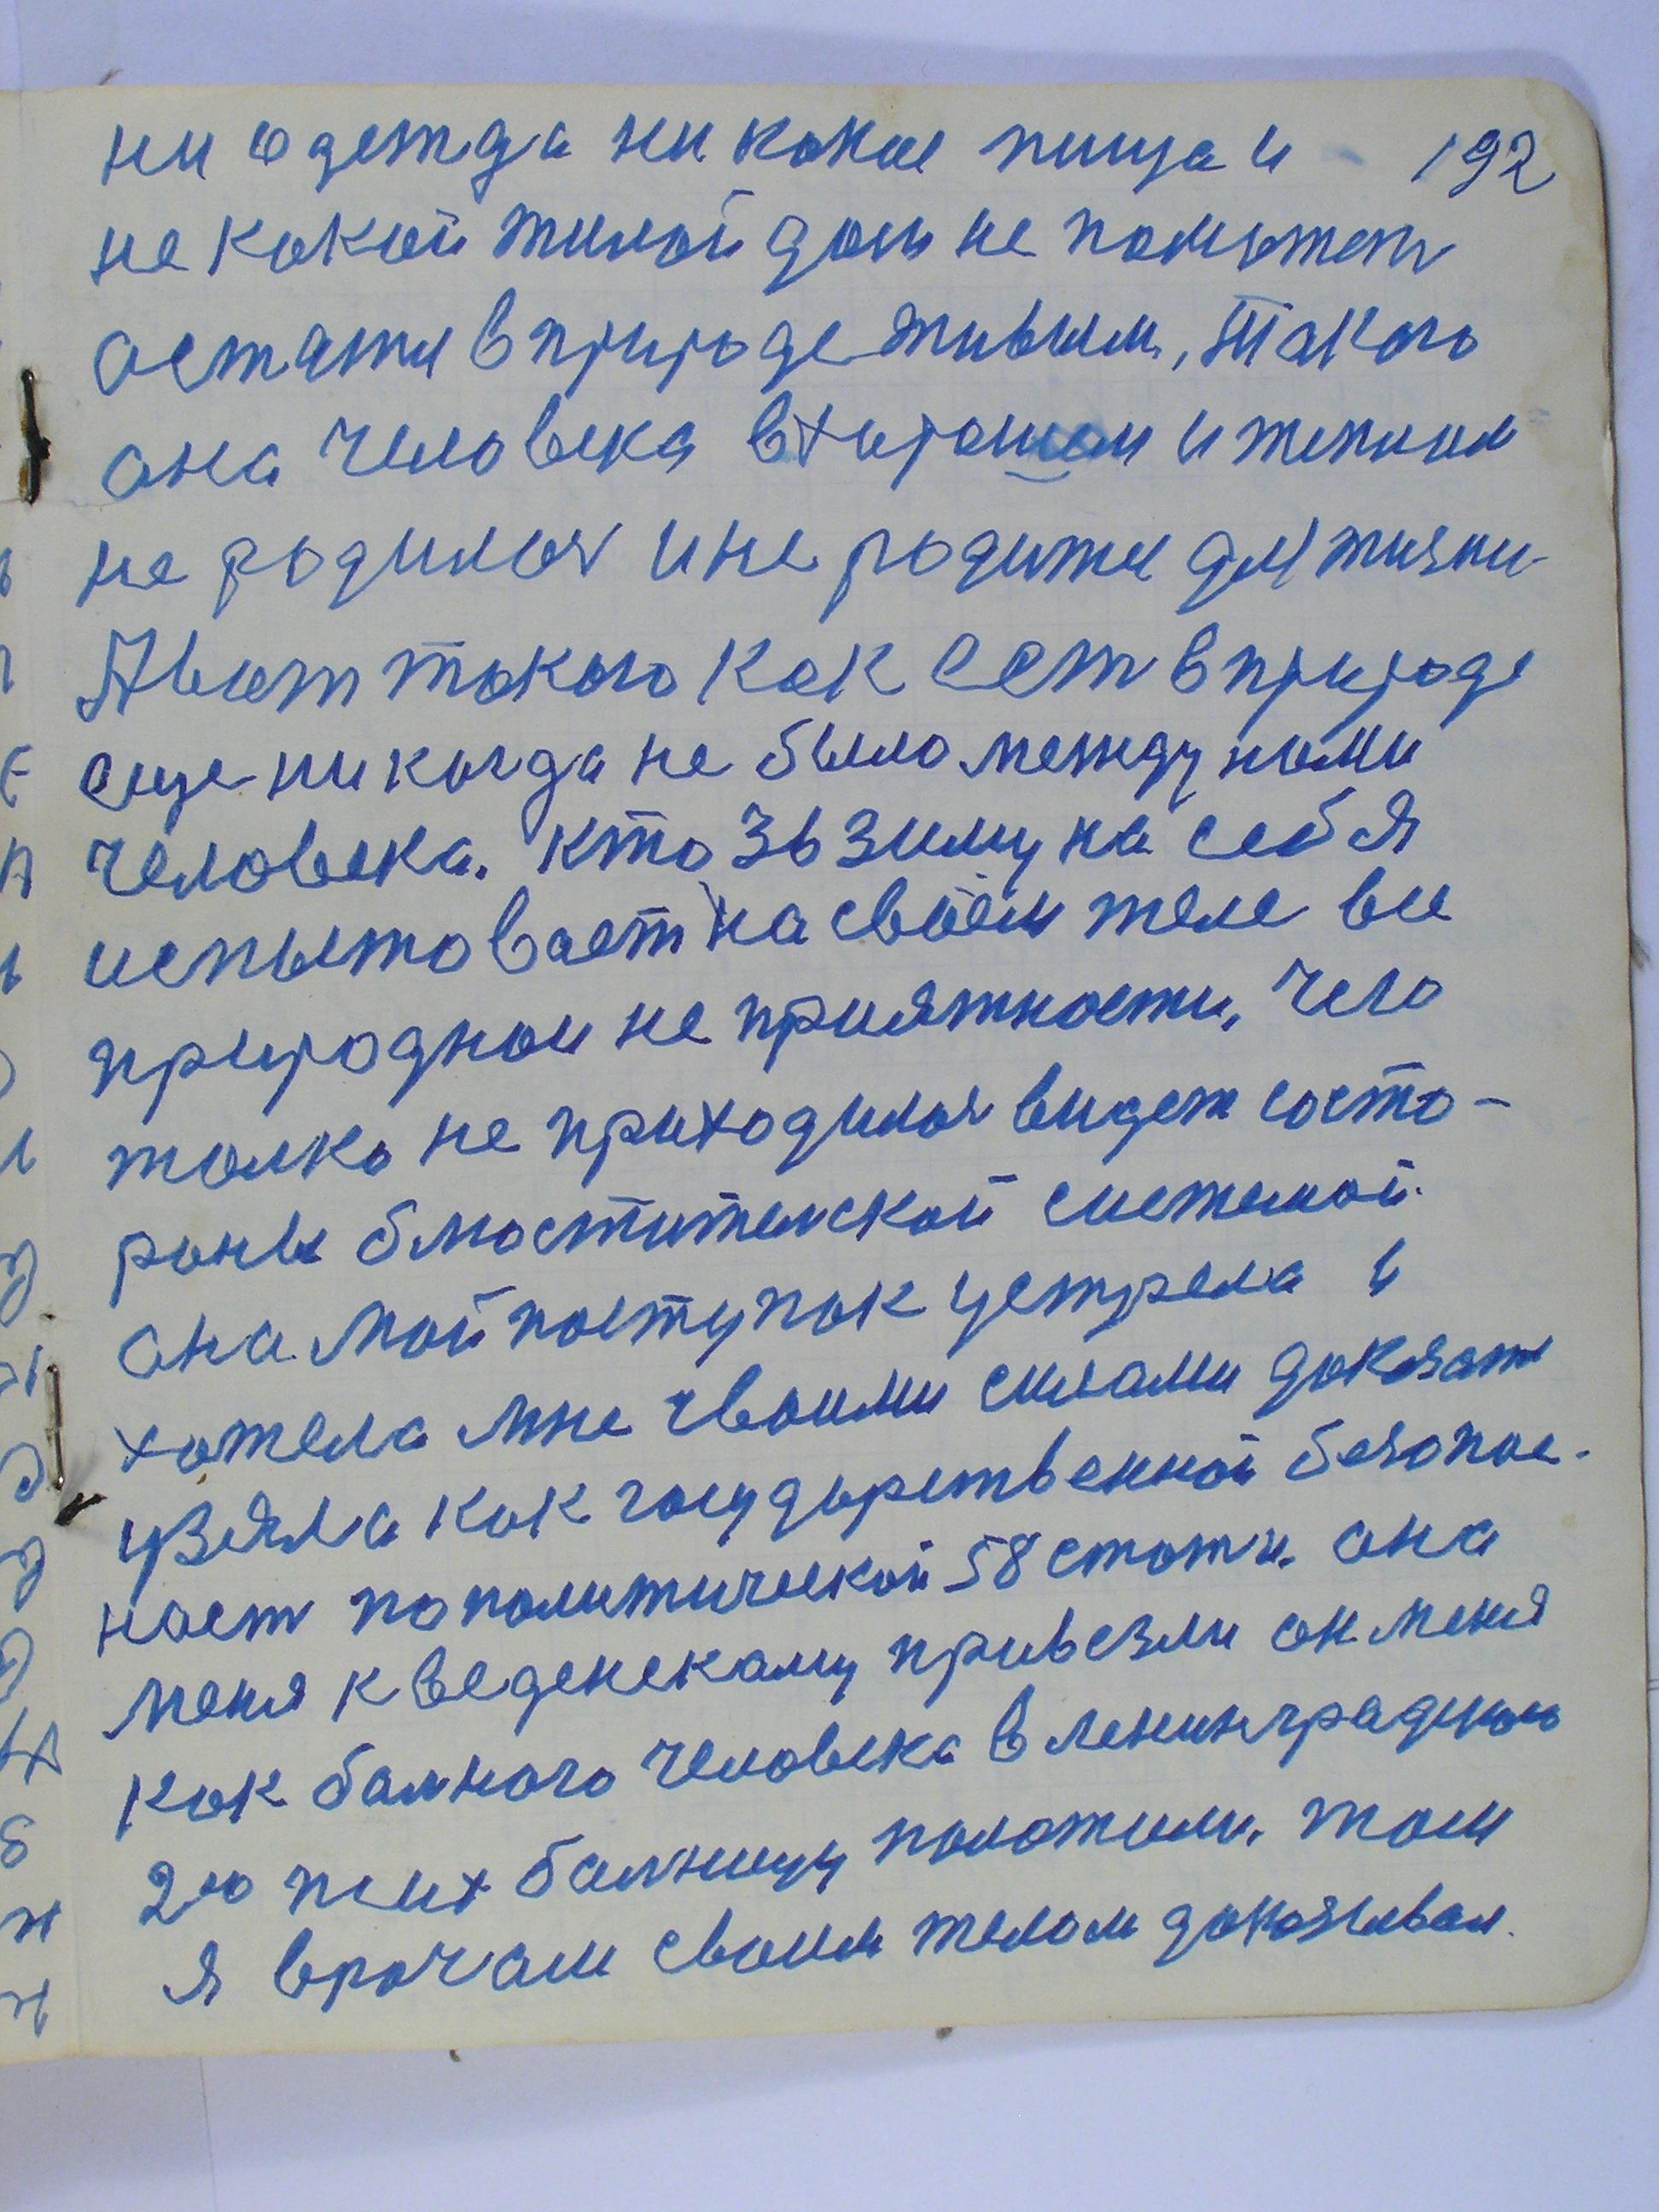 ни одежда ни какие пища и 192
не какой жилой дом не поможет
остатся в природе живым, такого
она человека в хорошом и теплом
не родилоя и не родитя для жизни
А вот такого как ест в природе
еще никогда не было между нами
человека. кто зьзиму на себя
испытовает на своем теле все
природнои не приятности, чего
толко не приходилоя видет состо-
роны блюстителской системой.
она мой поступок устрела и
хотела мне своими силами доказат
узяла как государственной безопас-
ност пополитической 58 стати. она
меня к веденскаму привезли он меня
как балного человека в ленинградскою
2ю псих балницу положили. там
я врачам своим телом доказывал.